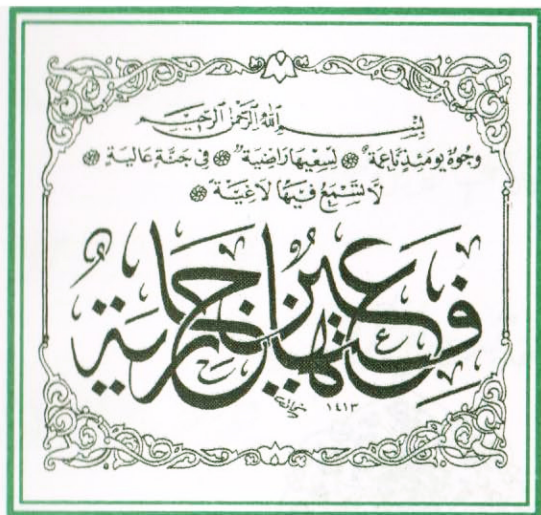 بِسْمِ اللهِ الرَّحْمٰنِ الرَّحِيمِ
وُجُوهٌ يَوْمَئِذٍ نَاعِمَةٌ ۞ لِسَعْيِهَا رَاضِيَةٌ ۞ فِي جَنَّةٍ عَالِيَةٍ ۞
لَا تَسْمَعُ فِيهَا لَاغِيَةً ۞
فِيهَا عَيْنٌ جَارِيَةٌ
١٤١٣